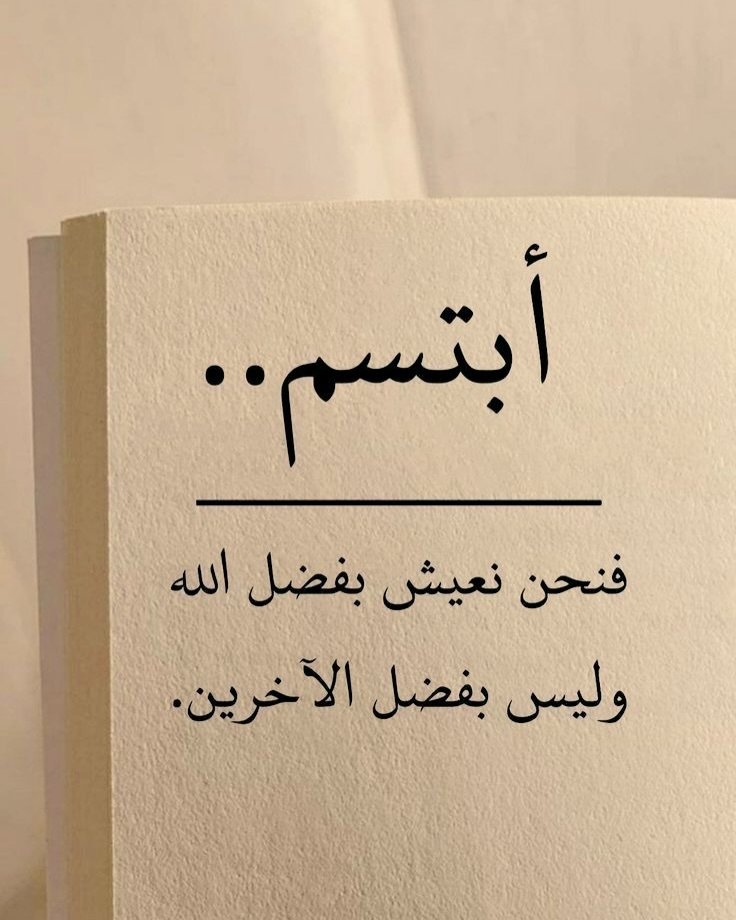 أبتسم..
فنحن نعيش بفضل الله
وليس بفضل الآخرين.